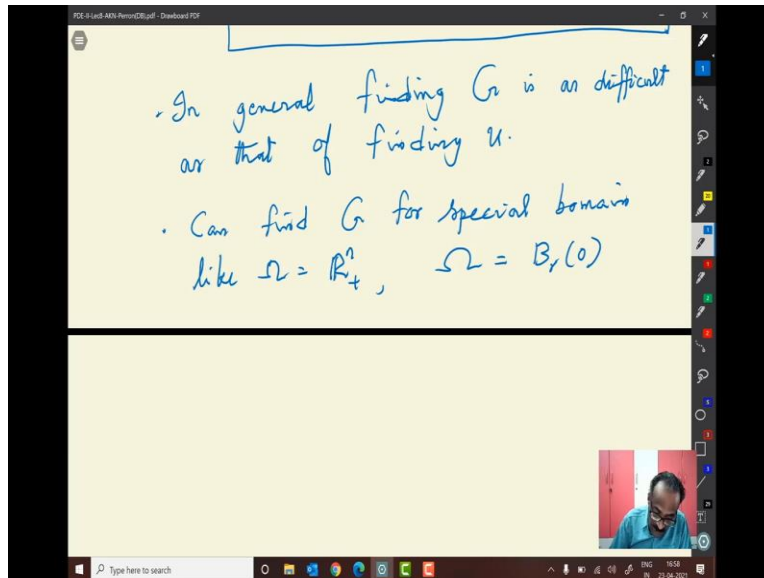 PDE-II-Lec8-AKN-Perron(DB).pdf - Drawboard PDF
. In general finding G is as difficult
as that of finding u.
. Can find G for special domain
like Ω = ℝⁿ₊, Ω = Bᵣ(0)
Type here to search
ENG 16:58
IN 23-04-2021